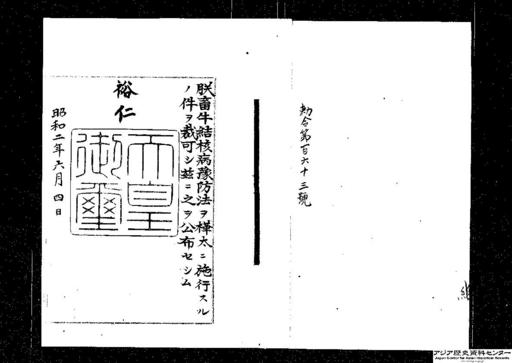 勅令第百六十三號
朕畜牛結核病豫防法ヲ樺太ニ施行スル
ノ件ヲ裁可シ茲ニ之ヲ公布セシム
裕仁
天皇御璽
昭和二年六月四日
アジア歴史資料センター
Japan Center for Asian Historical Records